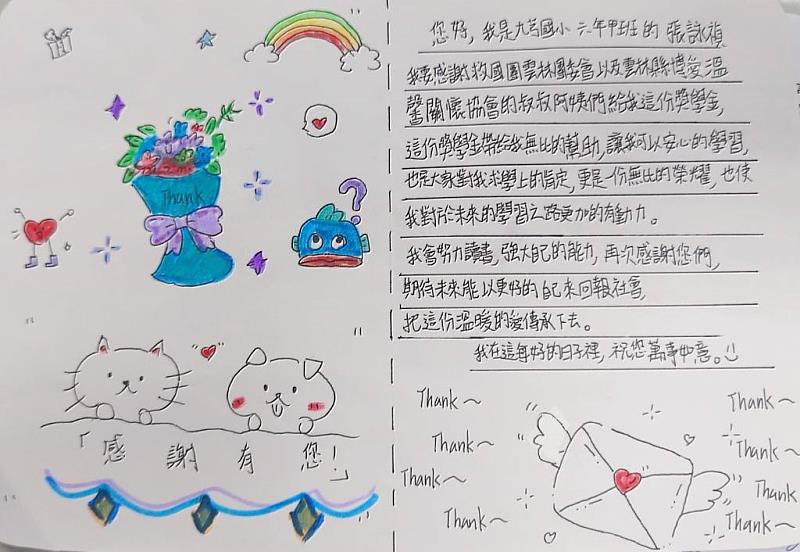 Thank
?
「感謝有您!」
您好，我是九芎國小六年甲班的 張詠禎
我要感謝救國團雲林團委會以及雲林縣博愛溫
馨關懷協會的叔叔阿姨們給我這份獎學金,
這份獎學金帶給我無比的幫助,讓我可以安心的學習,
也是大家對我求學上的肯定,更是一份無比的榮耀,也使
我對於未來的學習之路更加的有動力。
我會努力讀書,強大自己的能力,再次感謝您們,
期待未來能以更好的自己來回報社會,
把這份溫暖的愛傳承下去。
我在這每好的日子裡,祝您萬事如意。
Thank~
Thank~
Thank~
Thank~
Thank~
Thank~
Thank~
Thank~